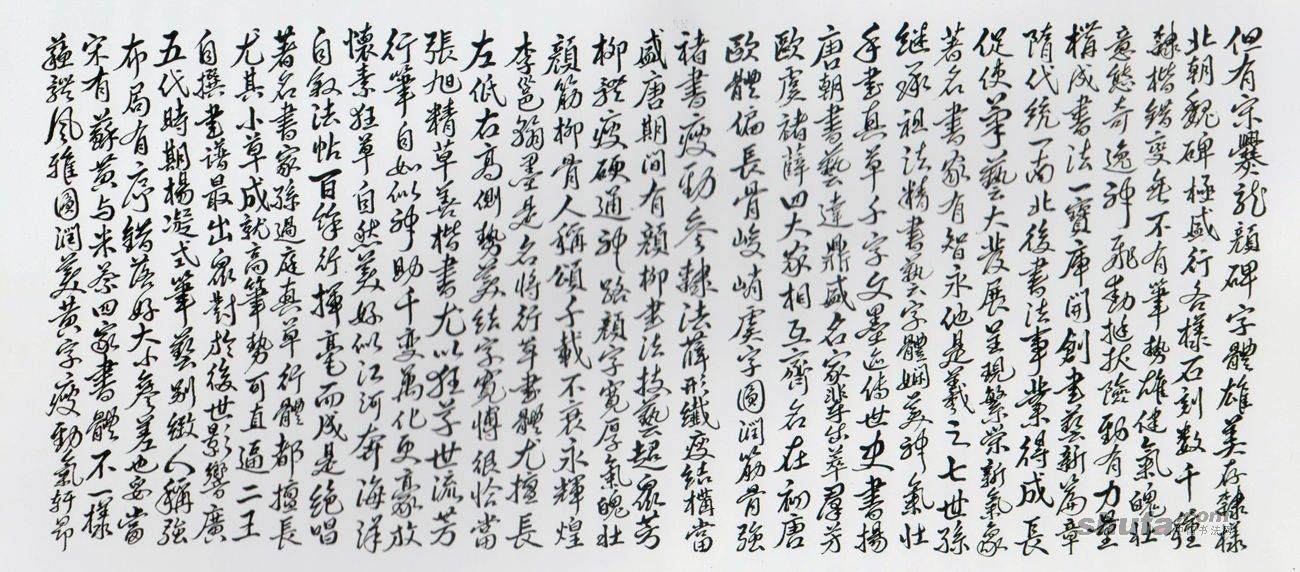 但有宋爨龍顏碑字體雄美存隸樣
北朝魏碑極盛行各樣石刻數千種
隸楷錯變無不有筆勢雄健氣魄壯
意態奇逸神飛動挺拔險勁有力量
構成書法一寶庫開創書藝新篇章
隋代統一南北後書法事業得成長
促使筆藝大發展呈現繁榮新氣象
著名書家有智永他是羲之七世孫
繼承祖法精書藝字體嫻美神氣壯
手書真草千字文墨迹傳世史書揚
唐朝書藝達鼎盛名家輩出萃群芳
歐虞禇薛四大家相互齊名在初唐
歐體偏長骨峻峭虞字圓潤筋骨強
禇書瘦勁參隸法薛形纖瘦結構當
盛唐期間有顏柳書法技藝超眾芳
柳體瘦硬通神路顏字寬厚氣魄壯
顏筋柳骨人稱頌千載不衰永輝煌
李邕翰墨是名將行草書體尤擅長
左低右高側勢美結字寬博很恰當
張旭精草善楷書尤以狂草世流芳
行筆自如似神助千變萬化更豪放
懷素狂草自然美好似江河奔海洋
自敘法帖百餘行揮毫而成是絕唱
著名書家孫過庭真草行體都擅長
尤其小草成就高筆勢可直逼二王
自撰書譜最出眾對於後世影響廣
五代時期楊凝式筆藝別緻人稱強
布局有序錯落好大小參差也妥當
宋有蘇黃与米蔡四家書體不一樣
蘇體風雅圓潤美黃字瘦勁氣軒昂